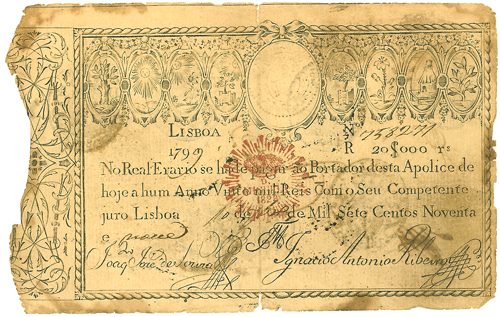 LISBOA Nº
1799 R 20$000 rs
No Real Erario se hade pagar ao Portador desta Apolice de
hoje a hum Anno Vinte mil Reis Com o Seu Competente
juro Lisboa de Mil Sete Centos Noventa
e
Ignacio Antonio Ribeiro